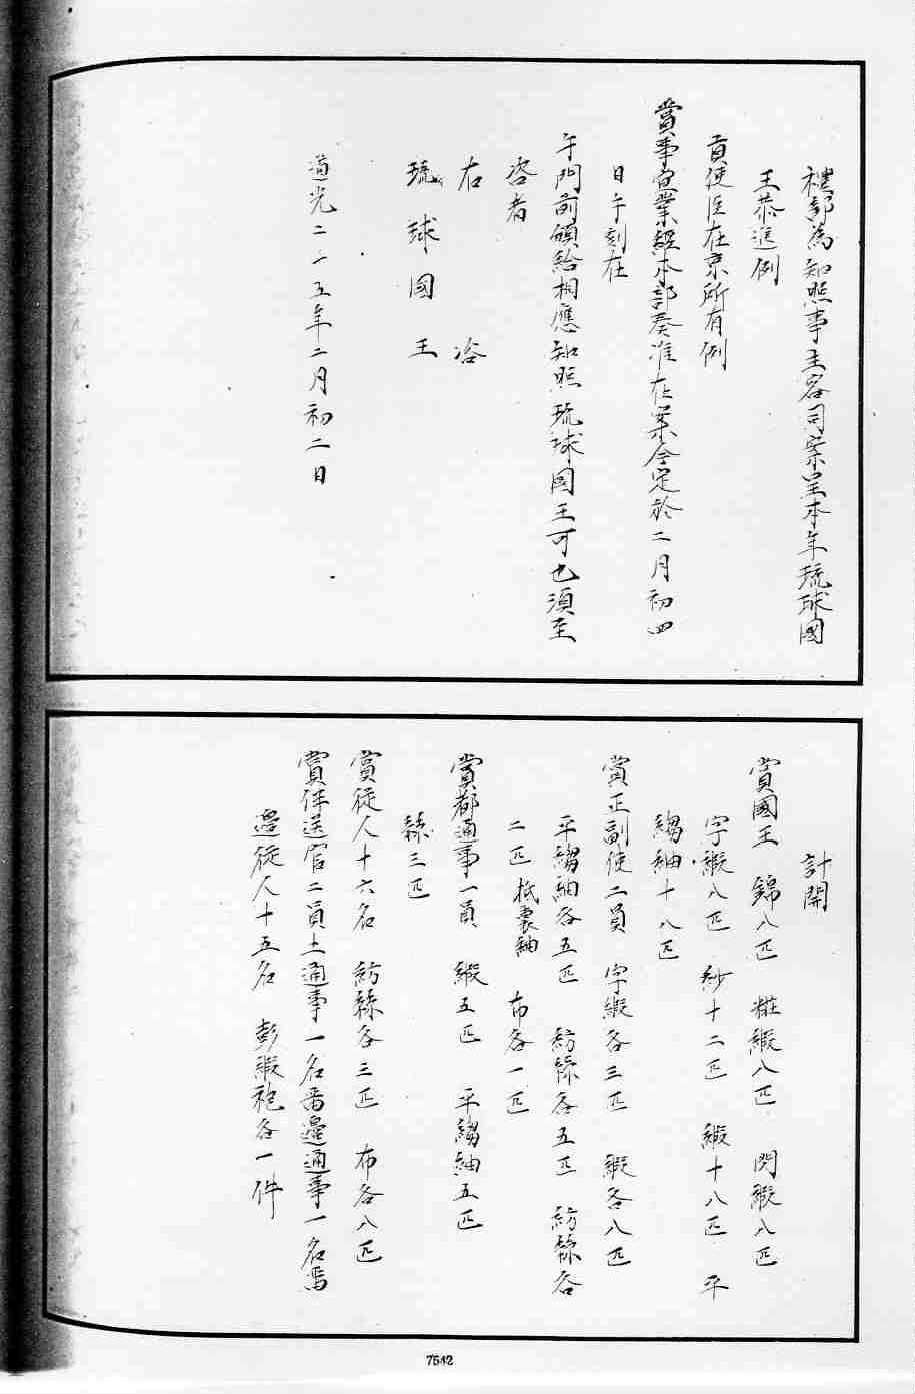 禮部為知照事主客司案呈本年琉球國
王恭進例
貢使臣在京所有例
賞事宜業經本部奏准在案今定於二月初四
日午刻在
午門前頒給相應知照琉球國王可也須至
咨者
右　咨
琉球國王
道光二十五年二月初二日
計開
賞國王　錦八匹　粧緞八匹　閃緞八匹
字緞八匹　紗十二匹　緞十八匹　平
縐紬十八匹
賞正副使二員　字緞各三匹　緞各八匹
平縐紬各五匹　紡絲各五匹　紡絲各
二匹　裏紬　布各一匹
賞都通事一員　緞五匹　平縐紬五匹
絲三匹
賞從人十六名　紡絲各三匹　布各八匹
賞伴送官二員土通事一名畱邊通事一名畱
邊從人十五名　彭緞袍各一件
7542